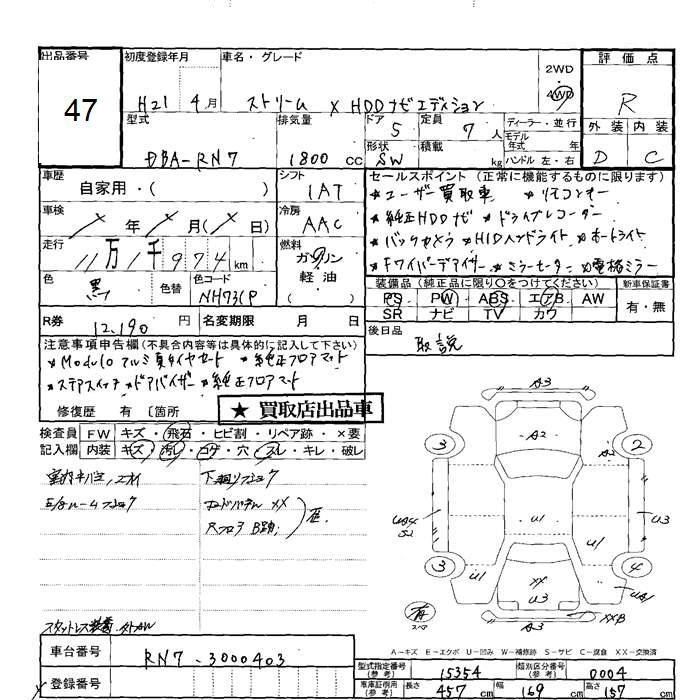 出品番号 初度登録年月 車名・グレード 2WD 4WD 評価点
47 H21 4月 ストリーム X HDDナビエディション R
型式 排気量 ドア 5 定員 7人 ディーラー・並行 外装 内装
DBA-RN7 1800cc 形状 SW 積載 kg モデル年式 年 ハンドル 左・右 D C
車歴 自家用・( ) シフト 1AT セールスポイント(正常に機能するものに限ります)
*ユーザー買取車 *リモコンキー
車検 年 月( 日) 冷房 AAC *純正HDDナビ *ドライブレコーダー
走行 11万1千974km 燃料 ガソリン *バックカメラ *HIDヘッドライト *オートライト
軽油 ( ) *Fワイパーデアイサー *ミラーヒーター *電格ミラー
色 黒 色替 色コード NH731P 装備品(純正品に限り○をつけてください) 新車保証書
PS PW ABS エアB AW 有・無
SR ナビ TV カワ
R券 12,190円 名変期限 月 日 後日品
取説
注意事項申告欄(不具合内容等は具体的に記入して下さい)
*Modulo アルミ 夏タイヤセット *純正フロアマット
*ステアスイッチ *ドアバイザー *純正フロアマット
修復歴 有 〔箇所 ★買取店出品車
検査員 FW キズ・飛石・ヒビ割・リペア跡・×要
記入欄 内装 キズ・汚れ・コゲ・穴・スレ・キレ・破レ
下廻りフショク
E/gルームフショク
コアサポートパネル XX
Rフロア
A3
A2
A2
3
2
UA4
S2
U1
U3
U1
3
4
U1
XX
U3
UA1
XXB
有
スペア
スタットレス装着
A-キズ E-エクボ U-凹み W-補修跡 S-サビ C-腐食 XX-交換済
車台番号 RN7-3000403
登録番号
型式指定番号(参考) 15354 類別区分番号(参考) 0004
車庫証明用(参考) 長さ 457cm 幅 169cm 高さ 157cm